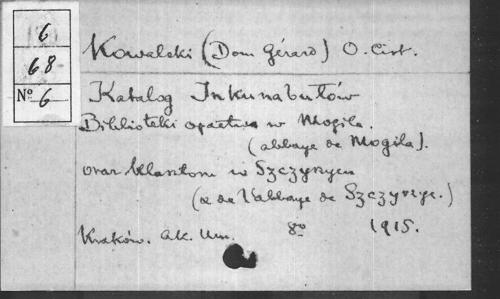 6
68
Nº 6
Kowalski (Dom Gérard) O. Cist.
Katalog Inkunabułów
Biblioteki opactwa w Mogile.
(abbaye de Mogila).
oraz klasztoru w Szczyrzycu
(& de l'abbaye de Szczyrzyc.)
Kraków. Ak. Um. 8º 1915.